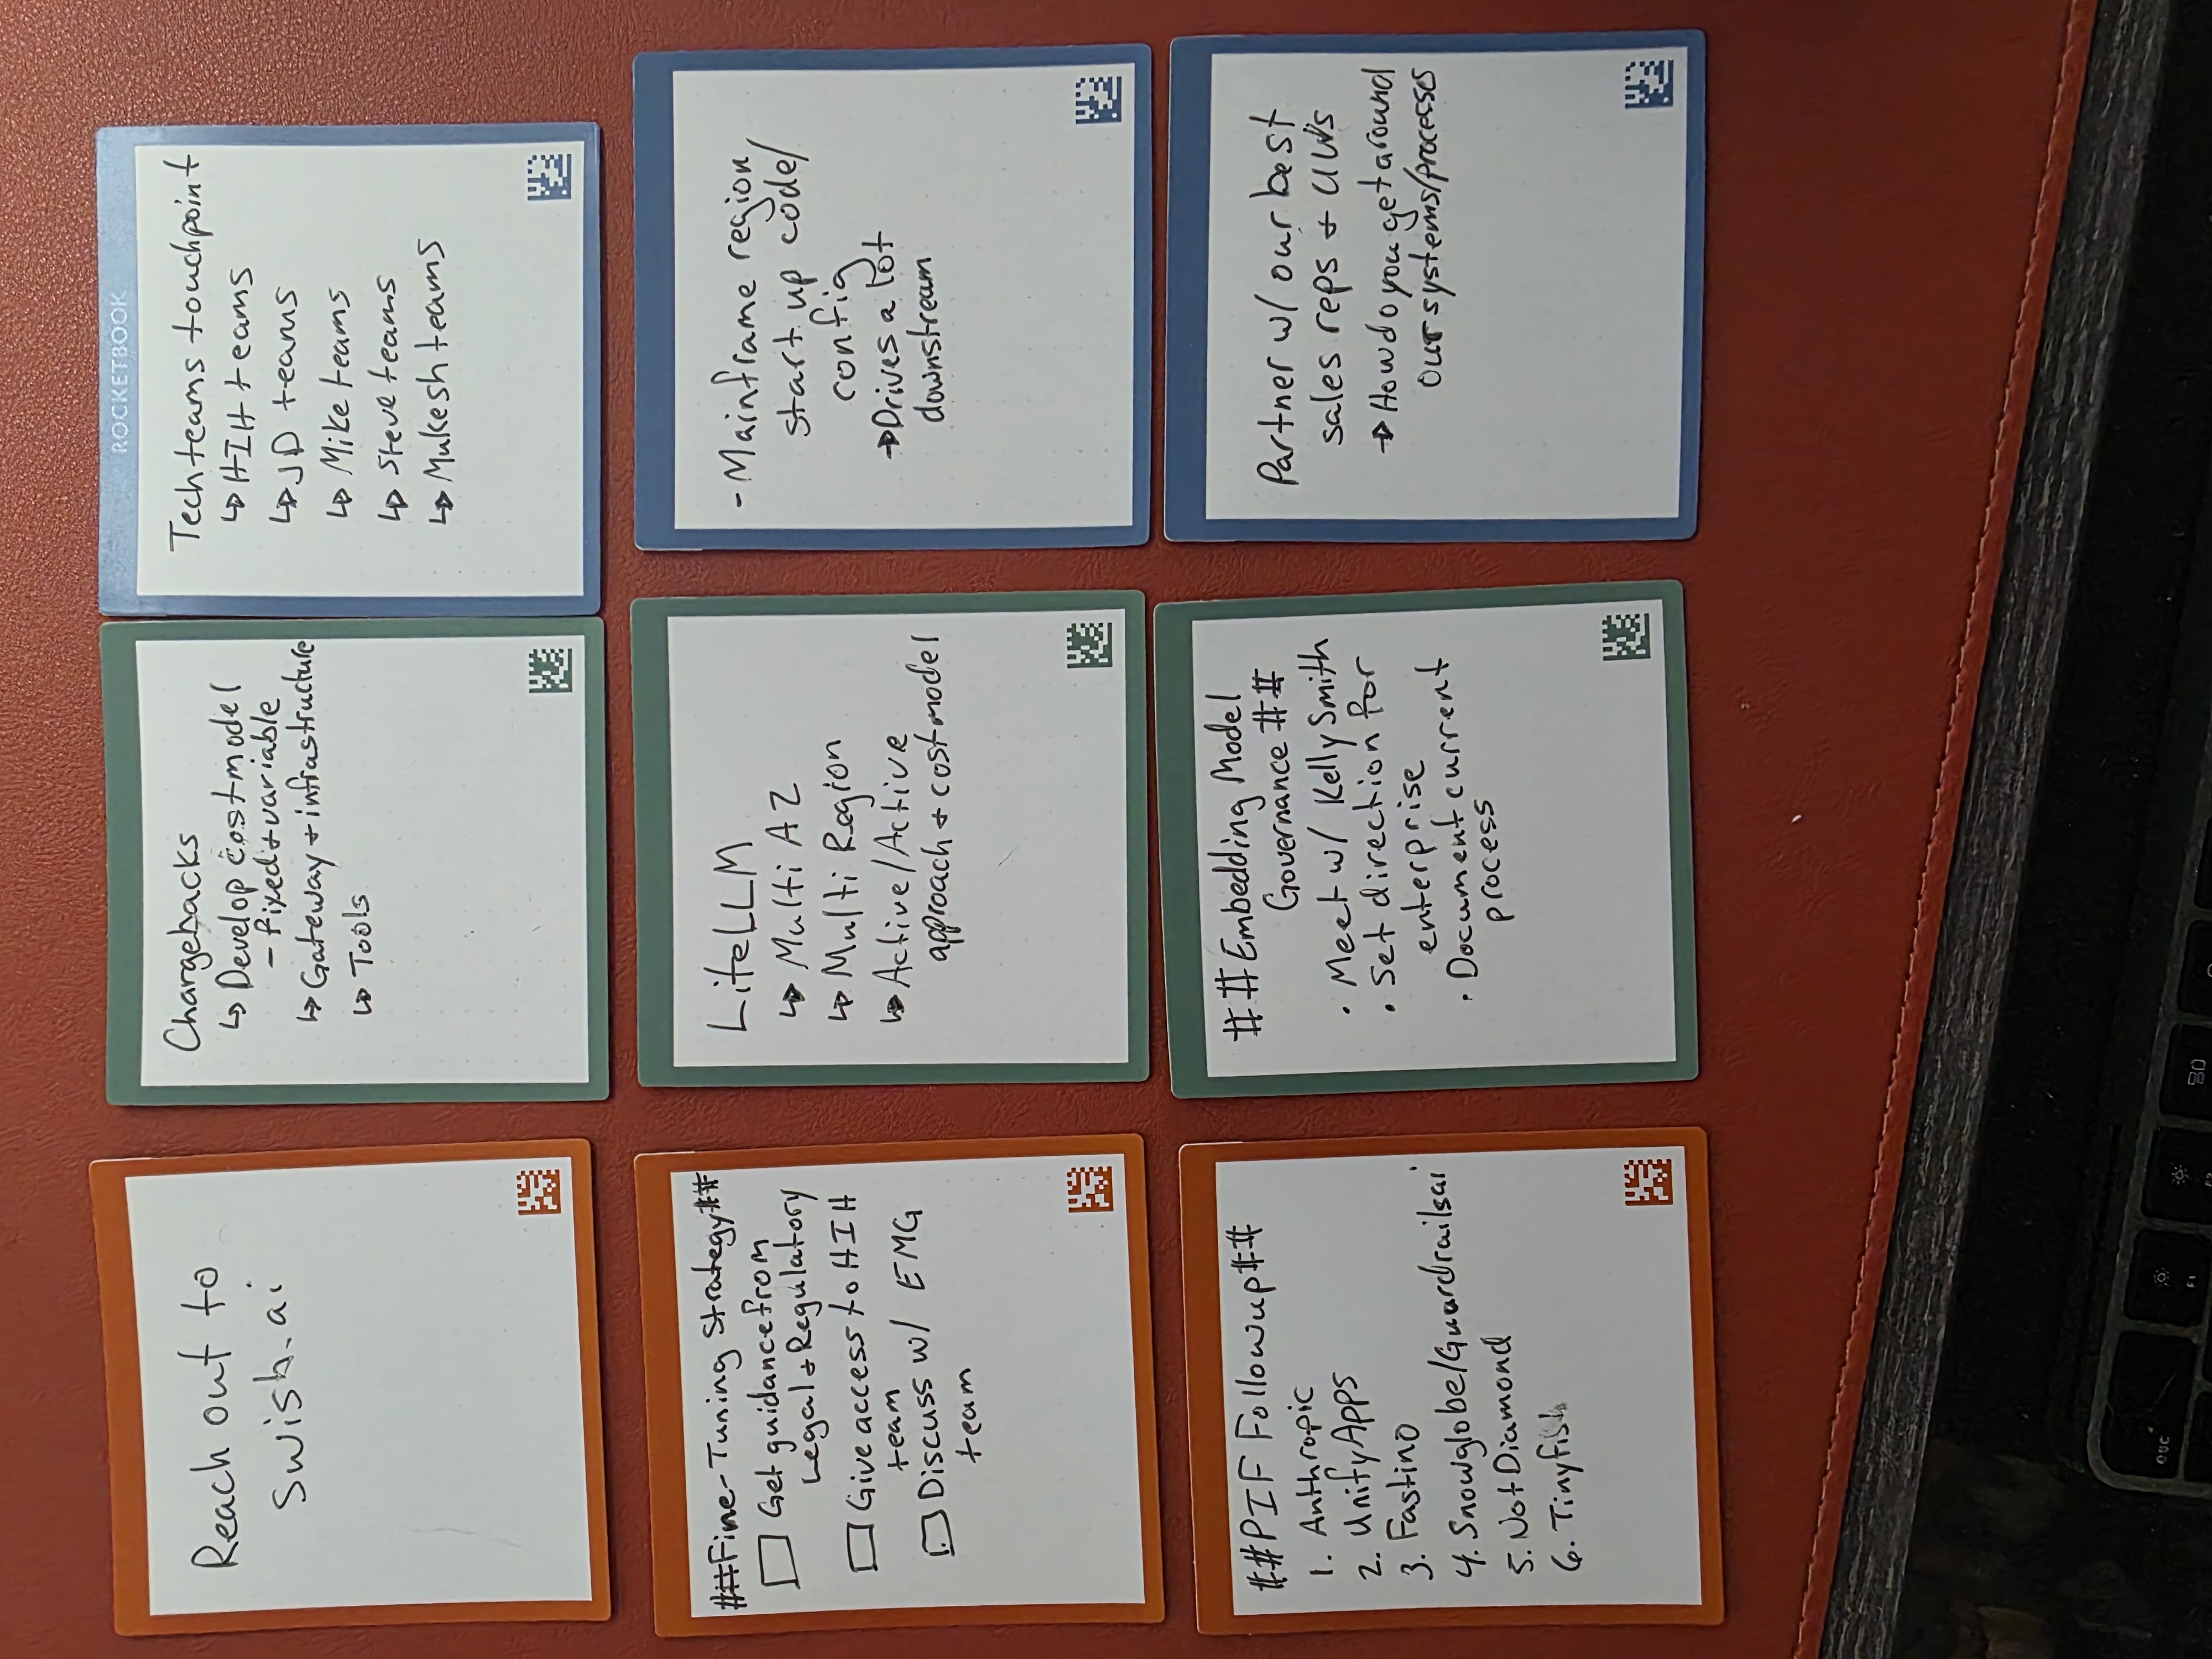 Reach out to
swish.ai
Chargebacks
↳ Develop cost model
- fixed + variable
↳ Gateway + infrastructure
↳ Tools
ROCKETBOOK
Tech teams touchpoint
↳ HIH teams
↳ JD teams
↳ Mike teams
↳ Steve teams
↳ Mukesh teams
##Fine-Tuning Strategy##
☐ Get guidance from
Legal + Regulatory
☐ Give access to HIH
team
☐ Discuss w/ EMG
team
LiteLLM
↳ Multi AZ
↳ Multi Region
↳ Active/Active
approach + cost model
- Mainframe region
start up code/
config
→ Drives a lot
downstream
##PIF Followup##
1. Anthropic
2. UnifyApps
3. Fastino
4. Snowglobe/Guardrailsai
5. NotDiamond
6. Tinyfish
##Embedding Model
Governance ##
• Meet w/ Kelly Smith
• Set direction for
enterprise
• Document current
process
Partner w/ our best
sales reps + UWs
→ How do you get around
our systems/processes
esc
F1
F2